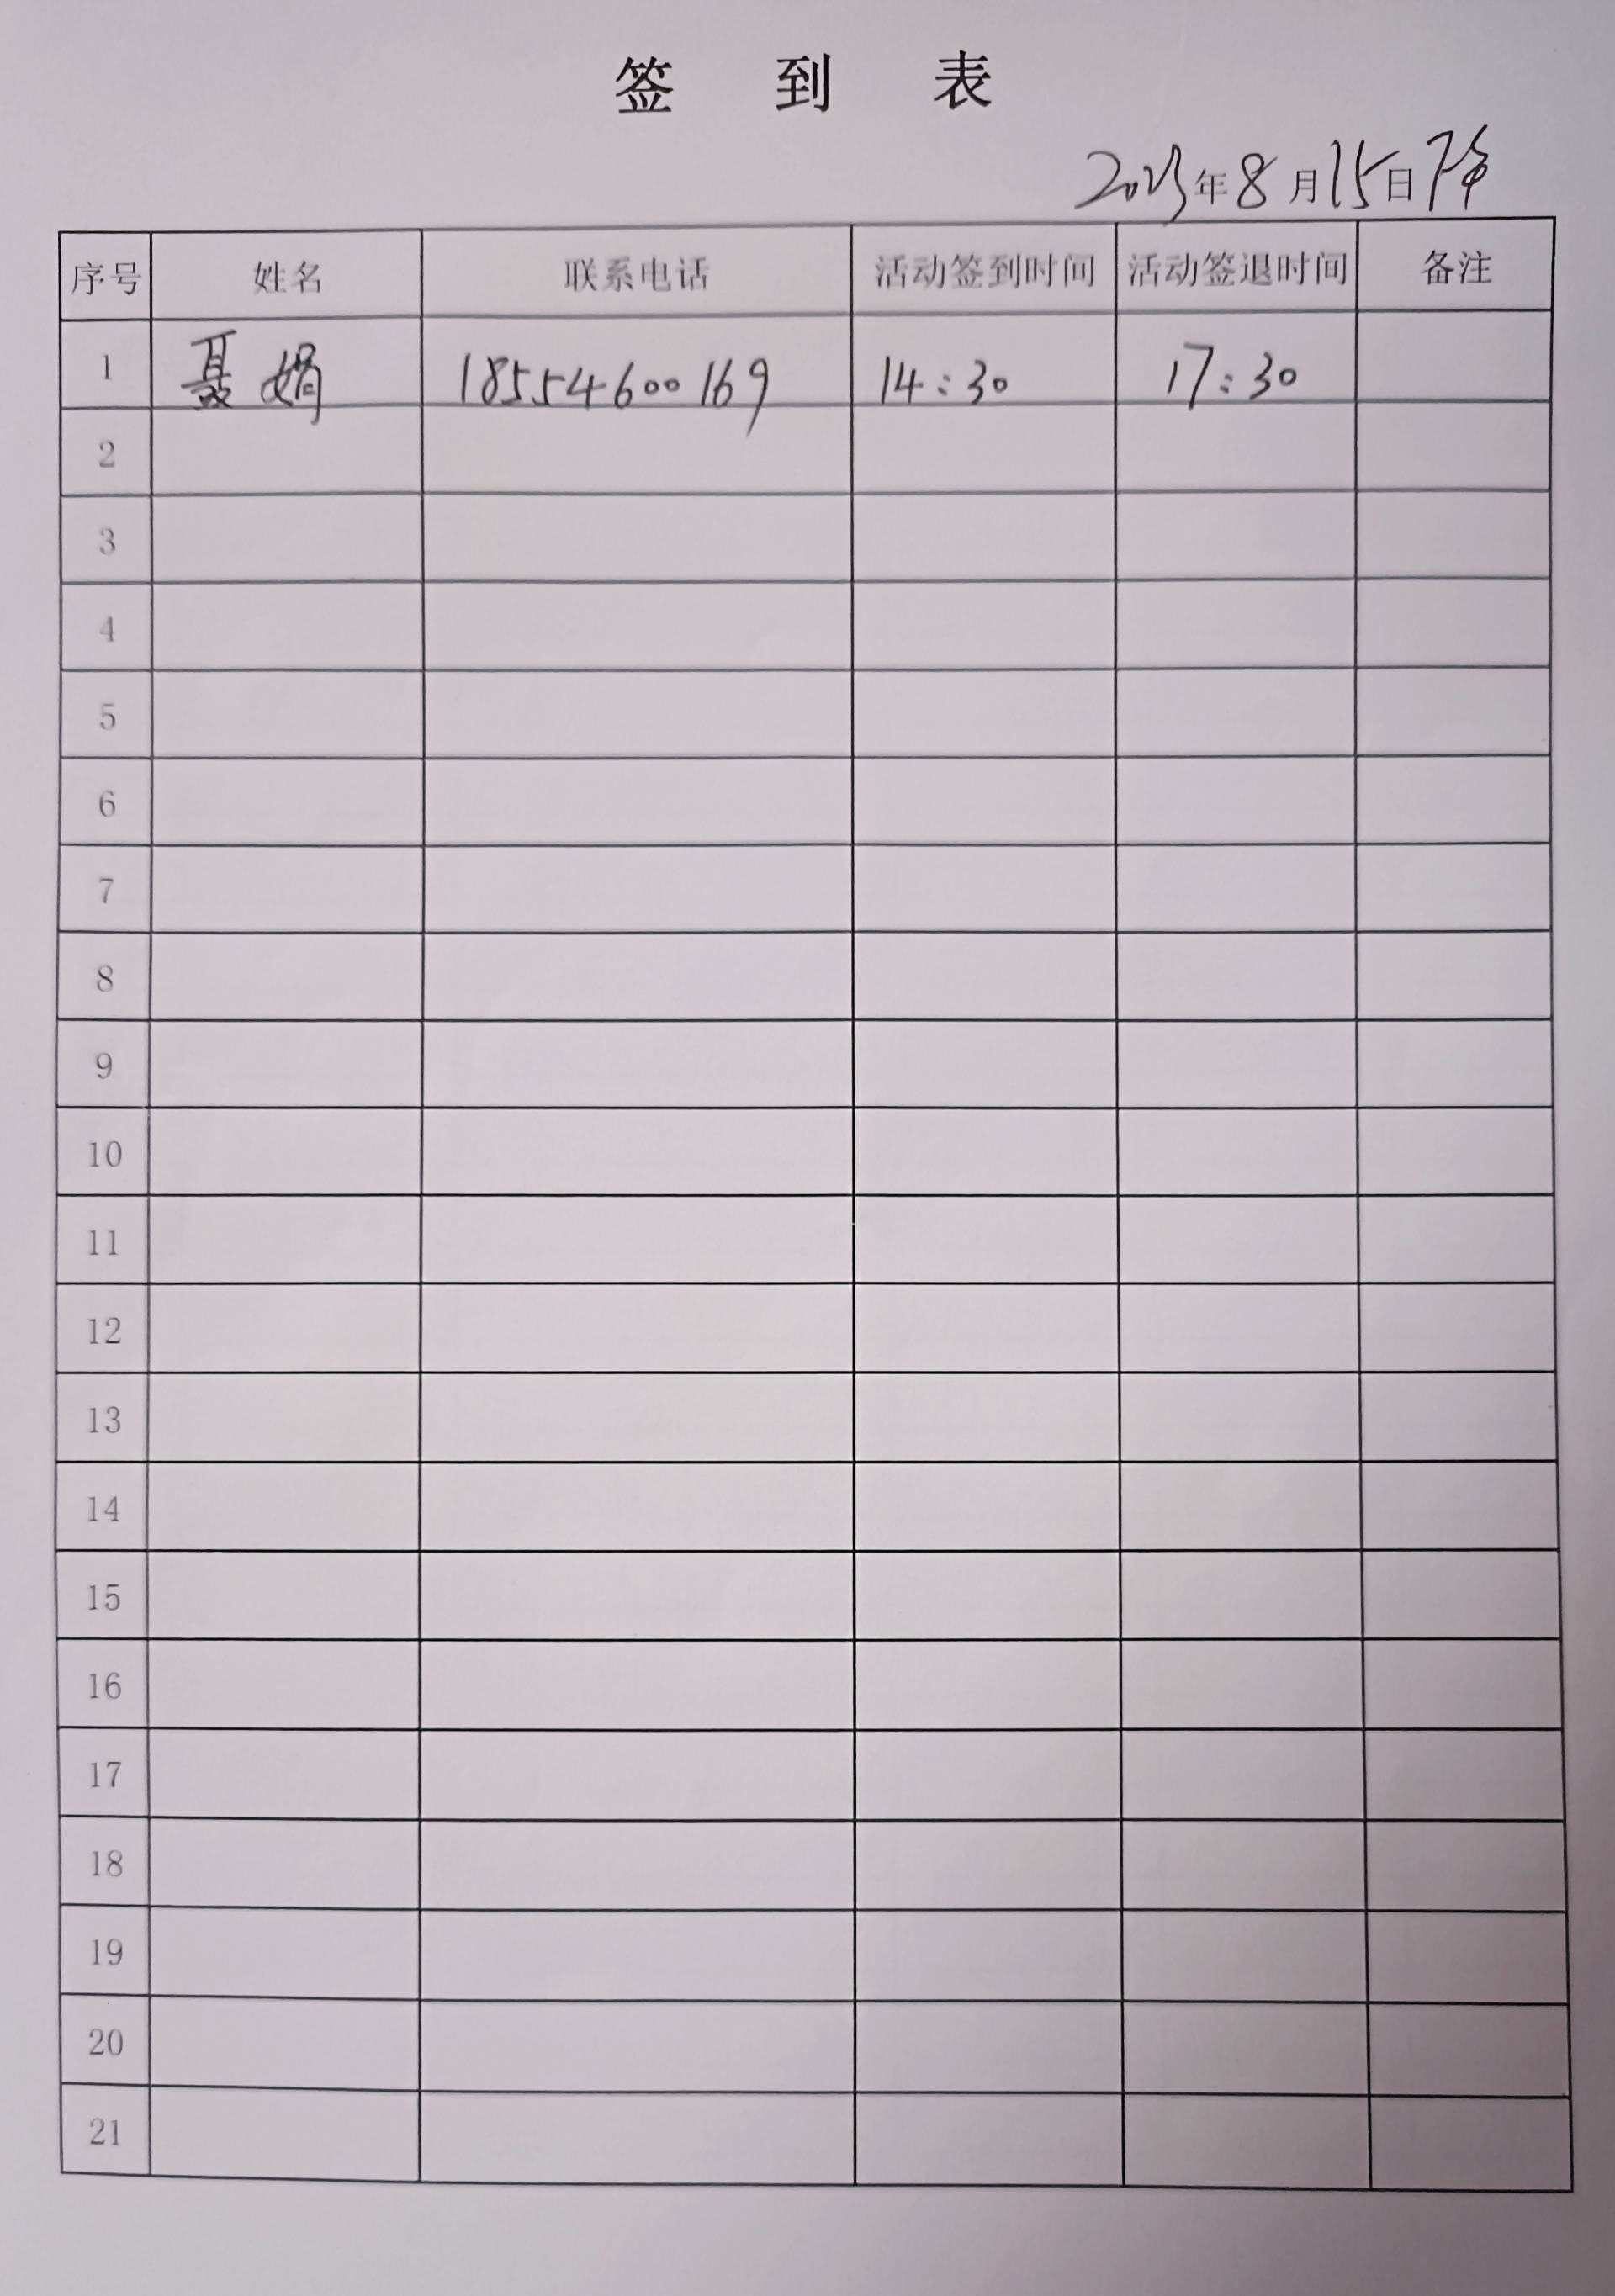 签 到 表
2023年8月15日下午
序号 姓名 联系电话 活动签到时间 活动签退时间 备注
1 聂娟 18554600169 14:30 17:30
2
3
4
5
6
7
8
9
10
11
12
13
14
15
16
17
18
19
20
21